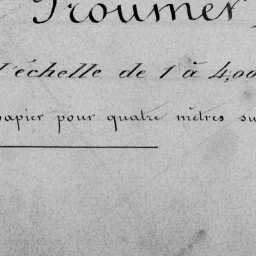 Troumet
l'échelle de 1 à 4,00
papier pour quatre mètres su